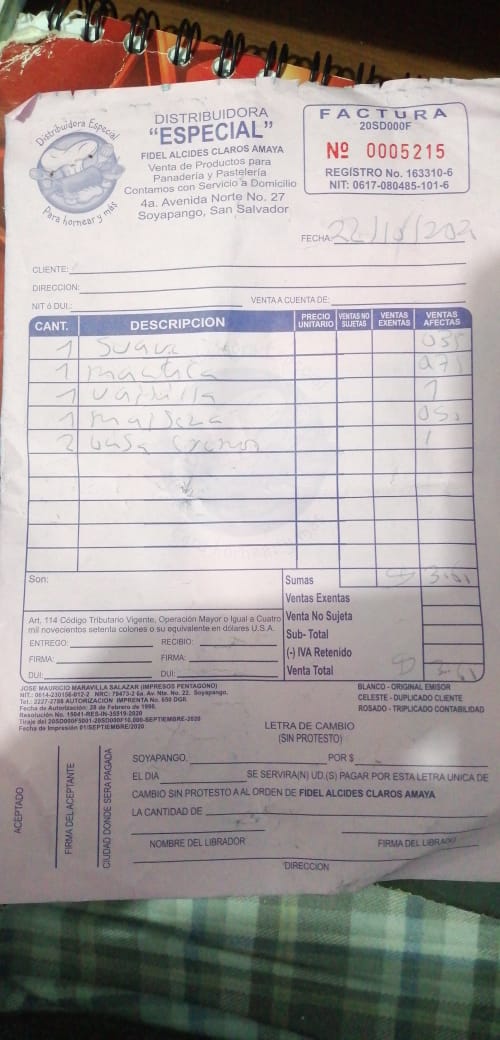 Distribuidora Especial
Para hornear y más
DISTRIBUIDORA
“ESPECIAL”
FIDEL ALCIDES CLAROS AMAYA
Venta de Productos para
Panadería y Pastelería
Contamos con Servicio a Domicilio
4a. Avenida Norte No. 27
Soyapango, San Salvador
FACTURA
20SD000F
Nº 0005215
REGISTRO No. 163310-6
NIT: 0617-080485-101-6
FECHA: 22/10/202
CLIENTE:
DIRECCION:
NIT ó DUI.: VENTA A CUENTA DE:
CANT. DESCRIPCION PRECIO UNITARIO VENTAS NO SUJETAS VENTAS EXENTAS VENTAS AFECTAS
1 Suave
1
1 Vainilla 1
1 Maisena
2 1
Son: Sumas
Ventas Exentas
Art. 114 Código Tributario Vigente, Operación Mayor o Igual a Cuatro Venta No Sujeta
mil novecientos setenta colones o su equivalente en dólares U.S.A. Sub- Total
ENTREGO: RECIBIO: (-) IVA Retenido
FIRMA: FIRMA: Venta Total
DUI: DUI:
JOSE MAURICIO MARAVILLA SALAZAR (IMPRESOS PENTAGONO)
NIT: 0614-230156-012-2 NRC: 79473-2 6a. Av. Nte. No. 22, Soyapango,
Tel.: 2227-2788 AUTORIZACION IMPRENTA No. 650 DGII
Fecha de Autorización: 28 de Febrero de 1998.
Resolución No. 15041-RES-IN-35519-2020
Tiraje del 20SD000F5001-20SD000F10,000-SEPTIEMBRE-2020
Fecha de Impresión 01/SEPTIEMBRE/2020
BLANCO - ORIGINAL EMISOR
CELESTE - DUPLICADO CLIENTE
ROSADO - TRIPLICADO CONTABILIDAD
LETRA DE CAMBIO
(SIN PROTESTO)
SOYAPANGO, POR $
EL DIA SE SERVIRA(N) UD.(S) PAGAR POR ESTA LETRA UNICA DE
CAMBIO SIN PROTESTO A AL ORDEN DE FIDEL ALCIDES CLAROS AMAYA
LA CANTIDAD DE
NOMBRE DEL LIBRADOR FIRMA DEL LIBRADO
DIRECCION
ACEPTADO
FIRMA DEL ACEPTANTE
CIUDAD DONDE SERA PAGADA